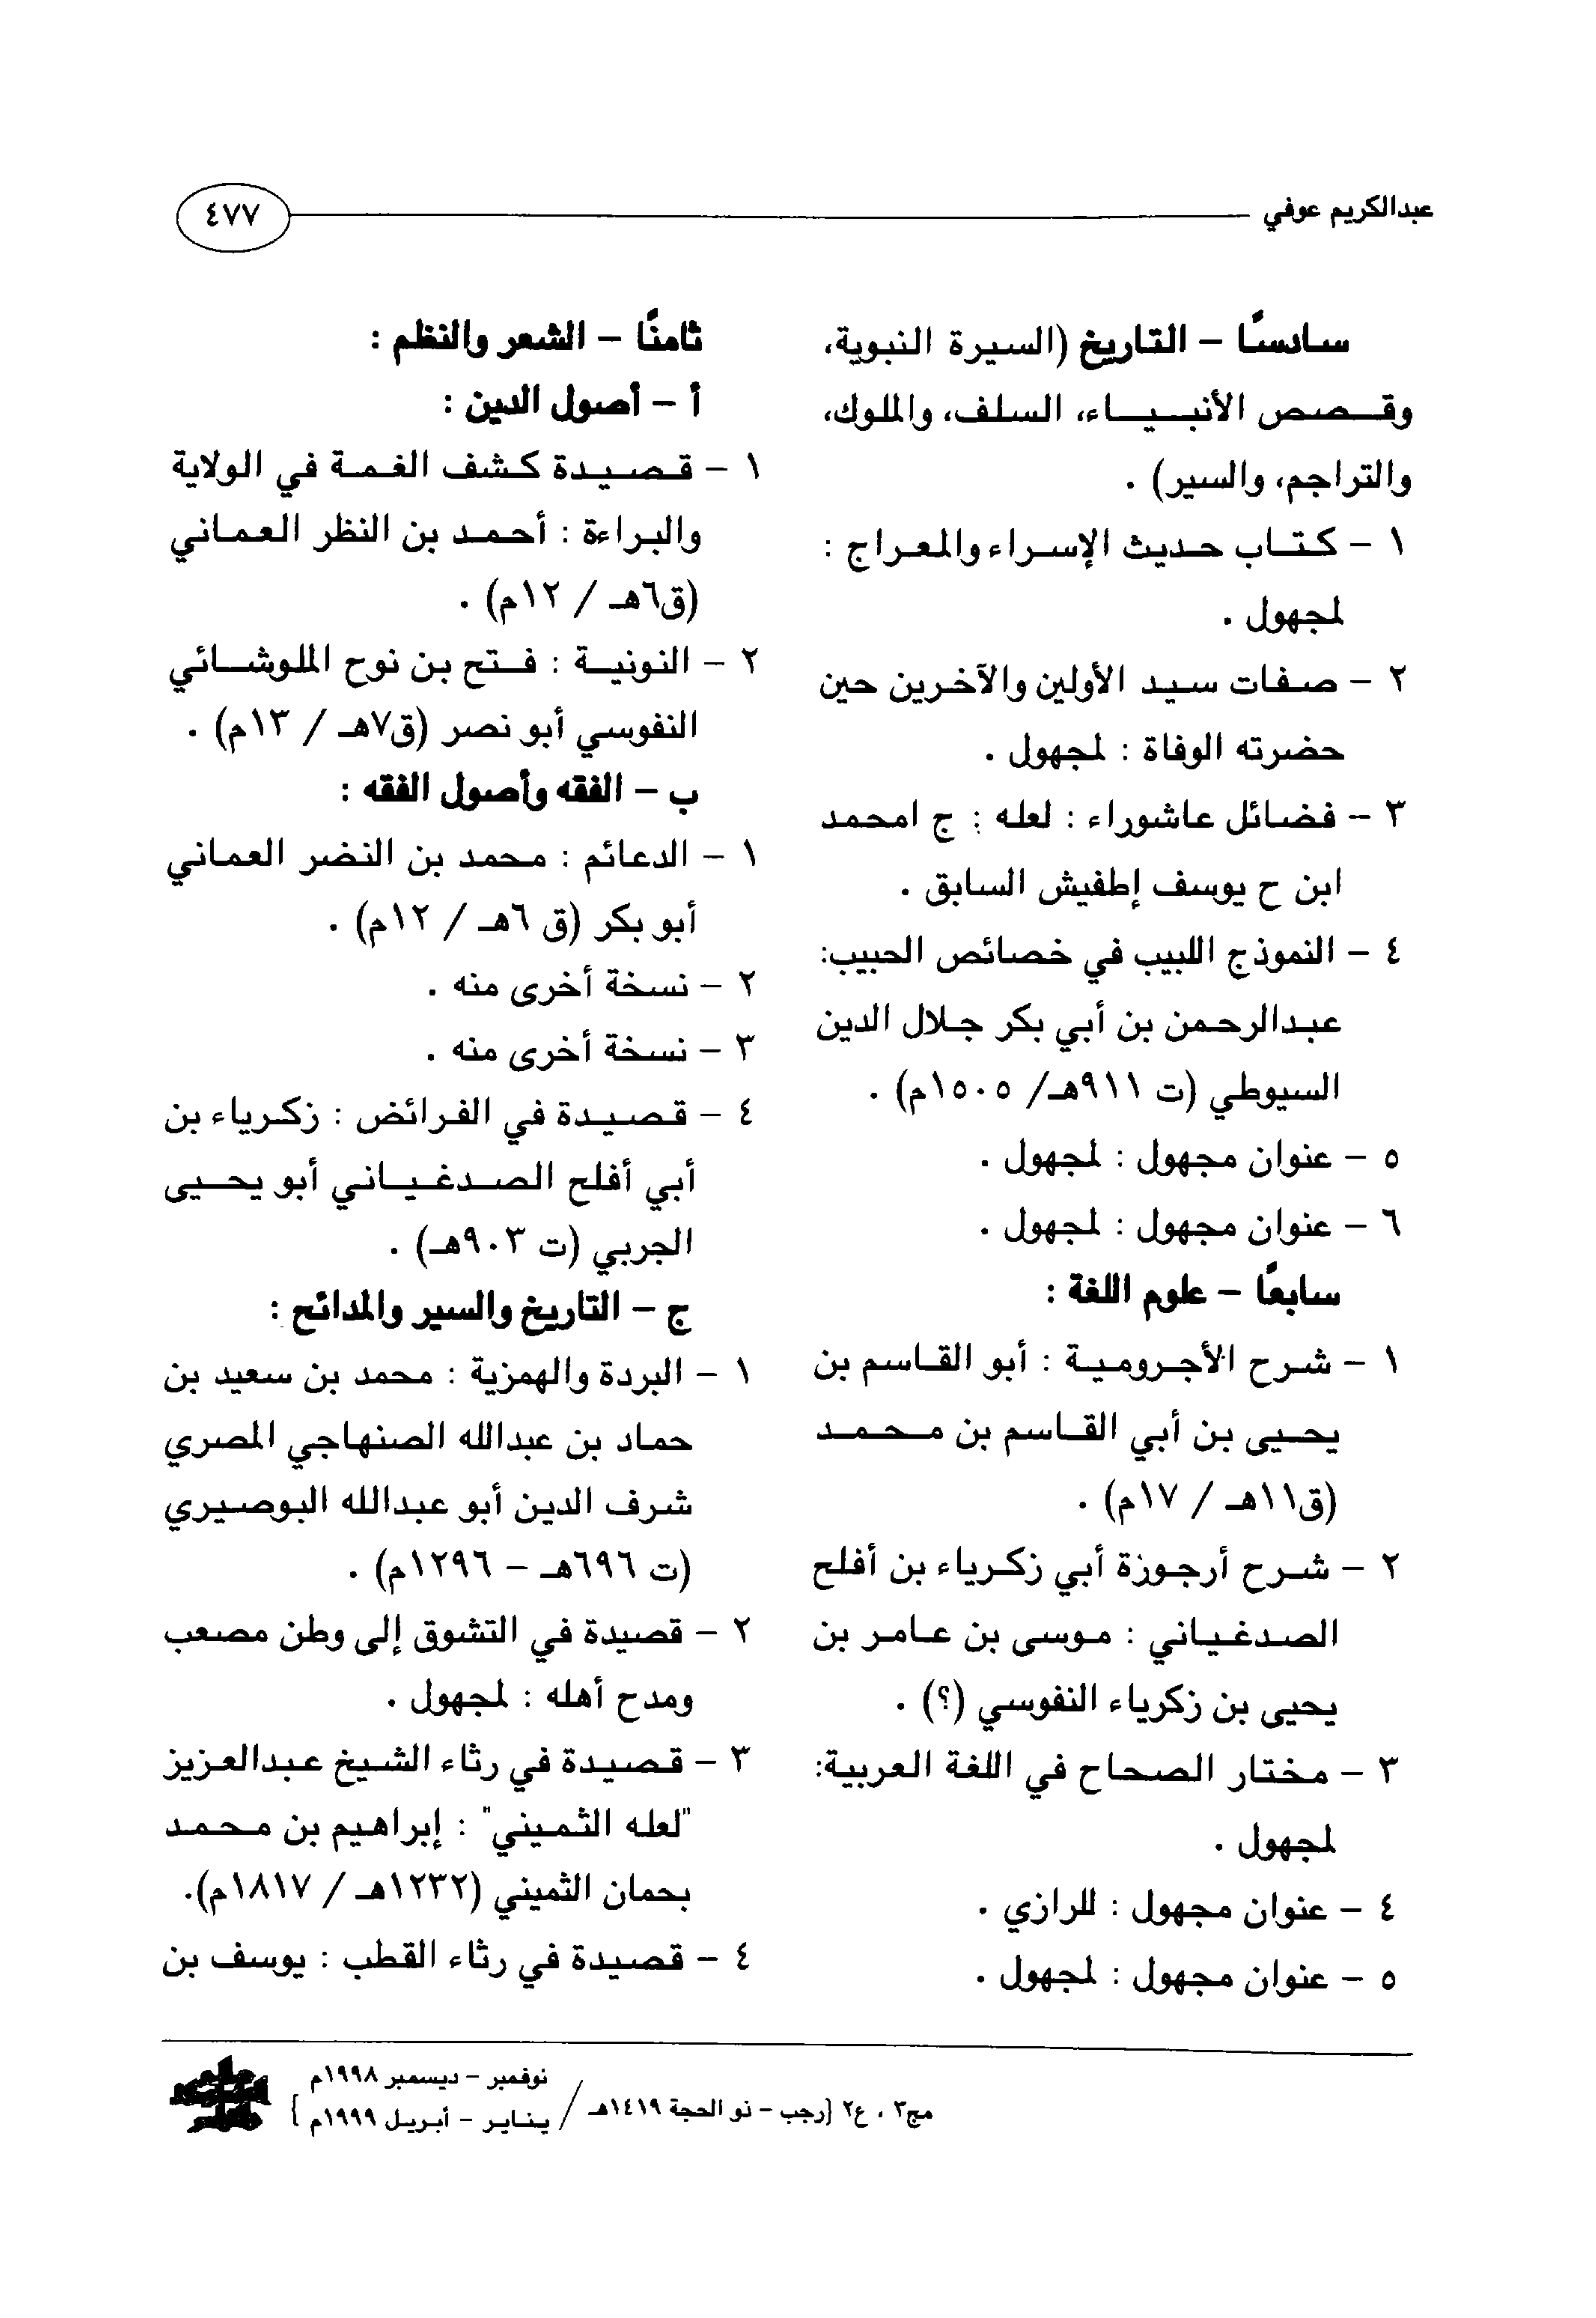 عبدالكريم عوفي
٤٧٧
سادسًا – التاريخ (السيرة النبوية،
وقصص الأنبياء، السلف، والملوك،
والتراجم، والسير) .
١ – كتاب حديث الإسراء والمعراج :
لمجهول .
٢ – صفات سيد الأولين والآخرين حين
حضرته الوفاة : لمجهول .
٣ – فضائل عاشوراء : لعله : ج امحمد
ابن ح يوسف إطفيش السابق .
٤ – النموذج اللبيب في خصائص الحبيب:
عبدالرحمن بن أبي بكر جلال الدين
السيوطي (ت ٩١١هـ/ ١٥٠٥م) .
٥ – عنوان مجهول : لمجهول .
٦ – عنوان مجهول : لمجهول .
سابعًا – علوم اللغة :
١ – شرح الأجرومية : أبو القاسم بن
يحيى بن أبي القاسم بن محمد
(ق١١هـ / ١٧م) .
٢ – شرح أرجوزة أبي زكرياء بن أفلح
الصدغياني : موسى بن عامر بن
يحيى بن زكرياء النفوسي (؟) .
٣ – مختار الصحاح في اللغة العربية:
لمجهول .
٤ – عنوان مجهول : للرازي .
٥ – عنوان مجهول : لمجهول .
ثامنًا – الشعر والنظم :
أ – أصول الدين :
١ – قصيدة كشف الغمة في الولاية
والبراءة : أحمد بن النظر العماني
(ق٦هـ / ١٢م) .
٢ – النونية : فتح بن نوح الملوشائي
النفوسي أبو نصر (ق٧هـ / ١٣م) .
ب – الفقه وأصول الفقه :
١ – الدعائم : محمد بن النضر العماني
أبو بكر (ق ٦هـ / ١٢م) .
٢ – نسخة أخرى منه .
٣ – نسخة أخرى منه .
٤ – قصيدة في الفرائض : زكرياء بن
أبي أفلح الصدغياني أبو يحيى
الجربي (ت ٩٠٣هـ) .
ج – التاريخ والسير والمدائح :
١ – البردة والهمزية : محمد بن سعيد بن
حماد بن عبدالله الصنهاجي المصري
شرف الدين أبو عبدالله البوصيري
(ت ٦٩٦هـ – ١٢٩٦م) .
٢ – قصيدة في التشوق إلى وطن مصعب
ومدح أهله : لمجهول .
٣ – قصيدة في رثاء الشيخ عبدالعزيز
"لعله الثميني" : إبراهيم بن محمد
بحمان الثميني (١٢٣٢هـ / ١٨١٧م).
٤ – قصيدة في رثاء القطب : يوسف بن
مج٣ ، ع٢ {رجب – ذو الحجة ١٤١٩هـ /
نوفمبر – ديسمبر ١٩٩٨م
يناير – أبريل ١٩٩٩م }